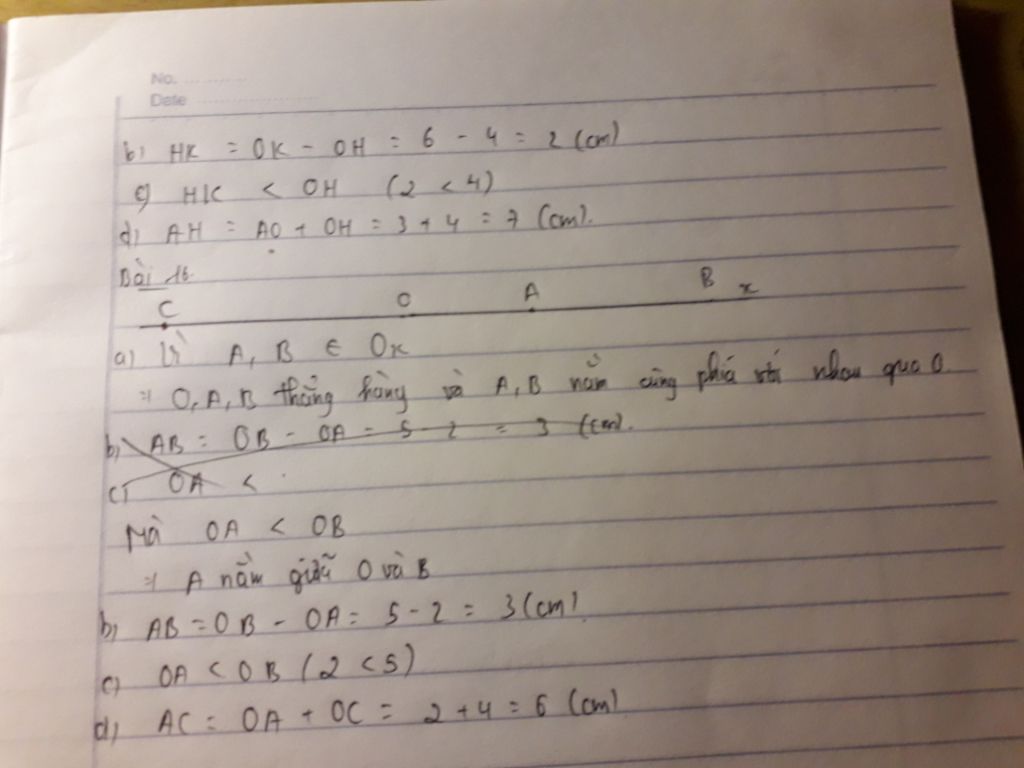 No. ............
Date ......................
b) HK = OK - OH = 6 - 4 = 2 (cm)
c) HK < OH (2 < 4)
d) AH = AO + OH = 3 + 4 = 7 (cm).
Bài 16.
C O A B x
a) Vì A, B ∈ Ox
=> O, A, B thẳng hàng và A, B nằm cùng phía với nhau qua O.
b) AB = OB - OA = 5 - 2 = 3 (cm).
c) OA <
Mà OA < OB
=> A nằm giữa O và B
b) AB = OB - OA = 5 - 2 = 3 (cm)
c) OA < OB (2 < 5)
d) AC = OA + OC = 2 + 4 = 6 (cm)